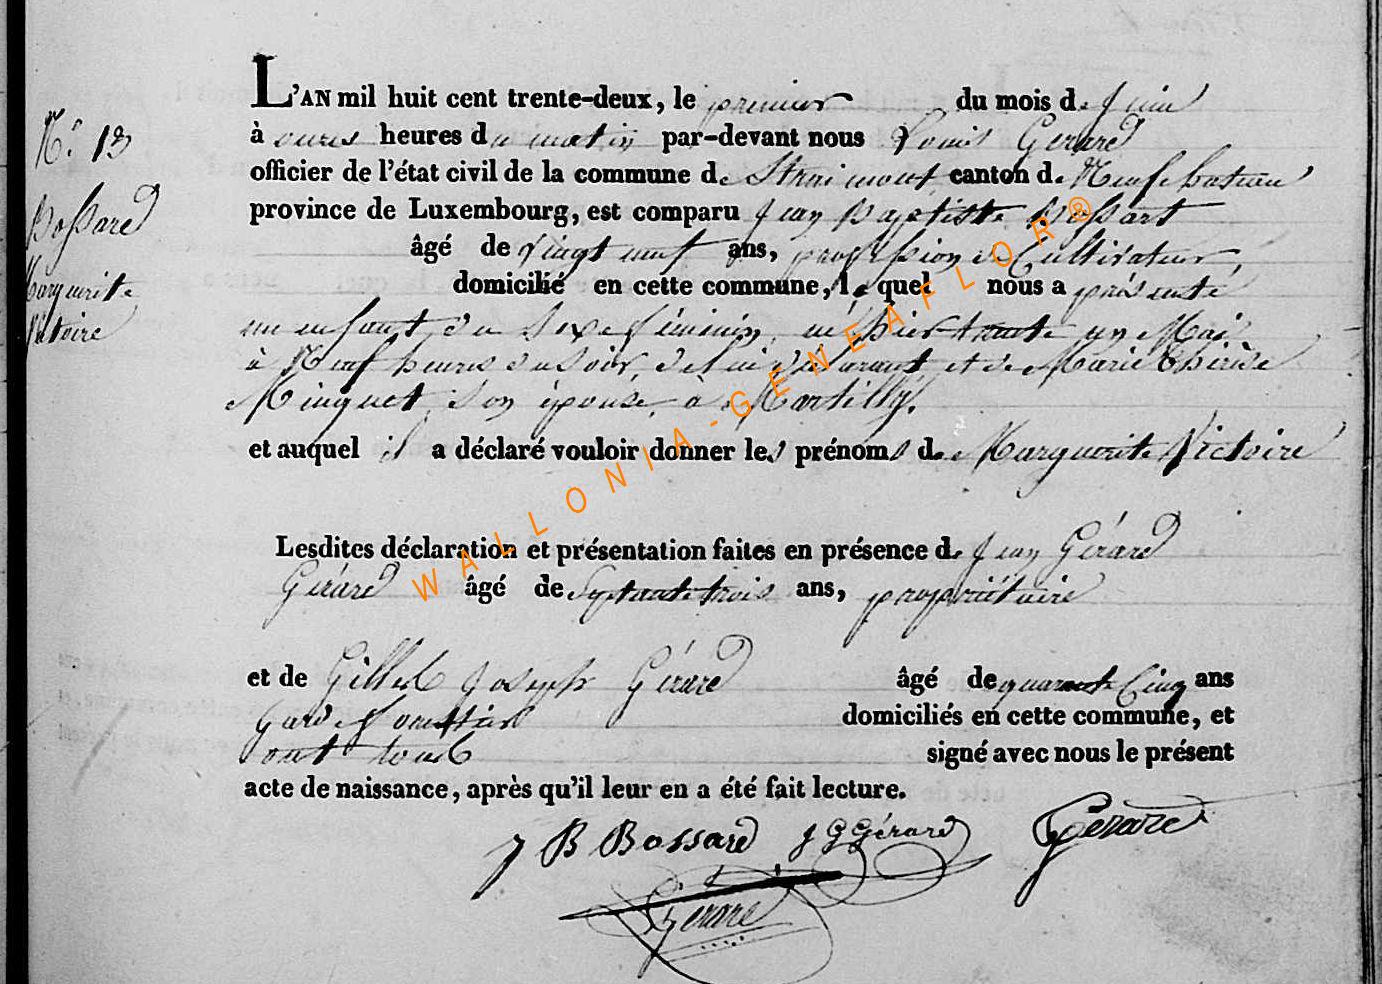 L'AN mil huit cent trente-deux, le premier du mois de Juin
à onze heures du matin par-devant nous Louis Gerard
officier de l'état civil de la commune de Straimont, canton de Neufchateau
province de Luxembourg, est comparu Jean Baptiste Bossart
âgé de vingt neuf ans, profession de Cultivateur,
domicilié en cette commune, lequel nous a présenté
un enfant, du sexe féminin, né hier trente un Mai
à Neuf heures du soir, de lui déclarant et de Marie Thérèse
Minguet, son épouse, à Martilly.
et auquel il a déclaré vouloir donner les prénoms de Marguerite Victoire
Lesdites déclaration et présentation faites en présence de Jean Gérard
Gérard âgé de Septante trois ans, propriétaire
et de Gilles Joseph Gérard âgé de quarante Cinq ans
Garde forestier domiciliés en cette commune, et
ont tous signé avec nous le présent
acte de naissance, après qu'il leur en a été fait lecture.
J B Bossard J G Gérard Gerard
Gerard
N.° 13
Bossard
Marguerite
Victoire
WALLONIA-GENEAFLOR®